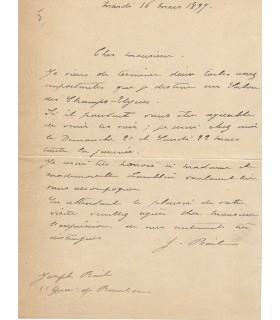 Mardi 16 mars 1897.
Cher monsieur.
Je viens de terminer deux toiles assez
importantes que je destine au Salon
des Champs-Elysées.
S'il pouvait vous être agréable
de venir les voir; je serai chez moi
le Dimanche 21 et Lundi 22 mars
toute la journée.
Je serai très honoré si madame et
mademoiselle veulent bien
vous accompagner.
En attendant le plaisir de votre
visite veuillez agréer cher monsieur
l'expression de mes sentiments les
distingués
J. Bail
Joseph Bail
Quai de Bourbon